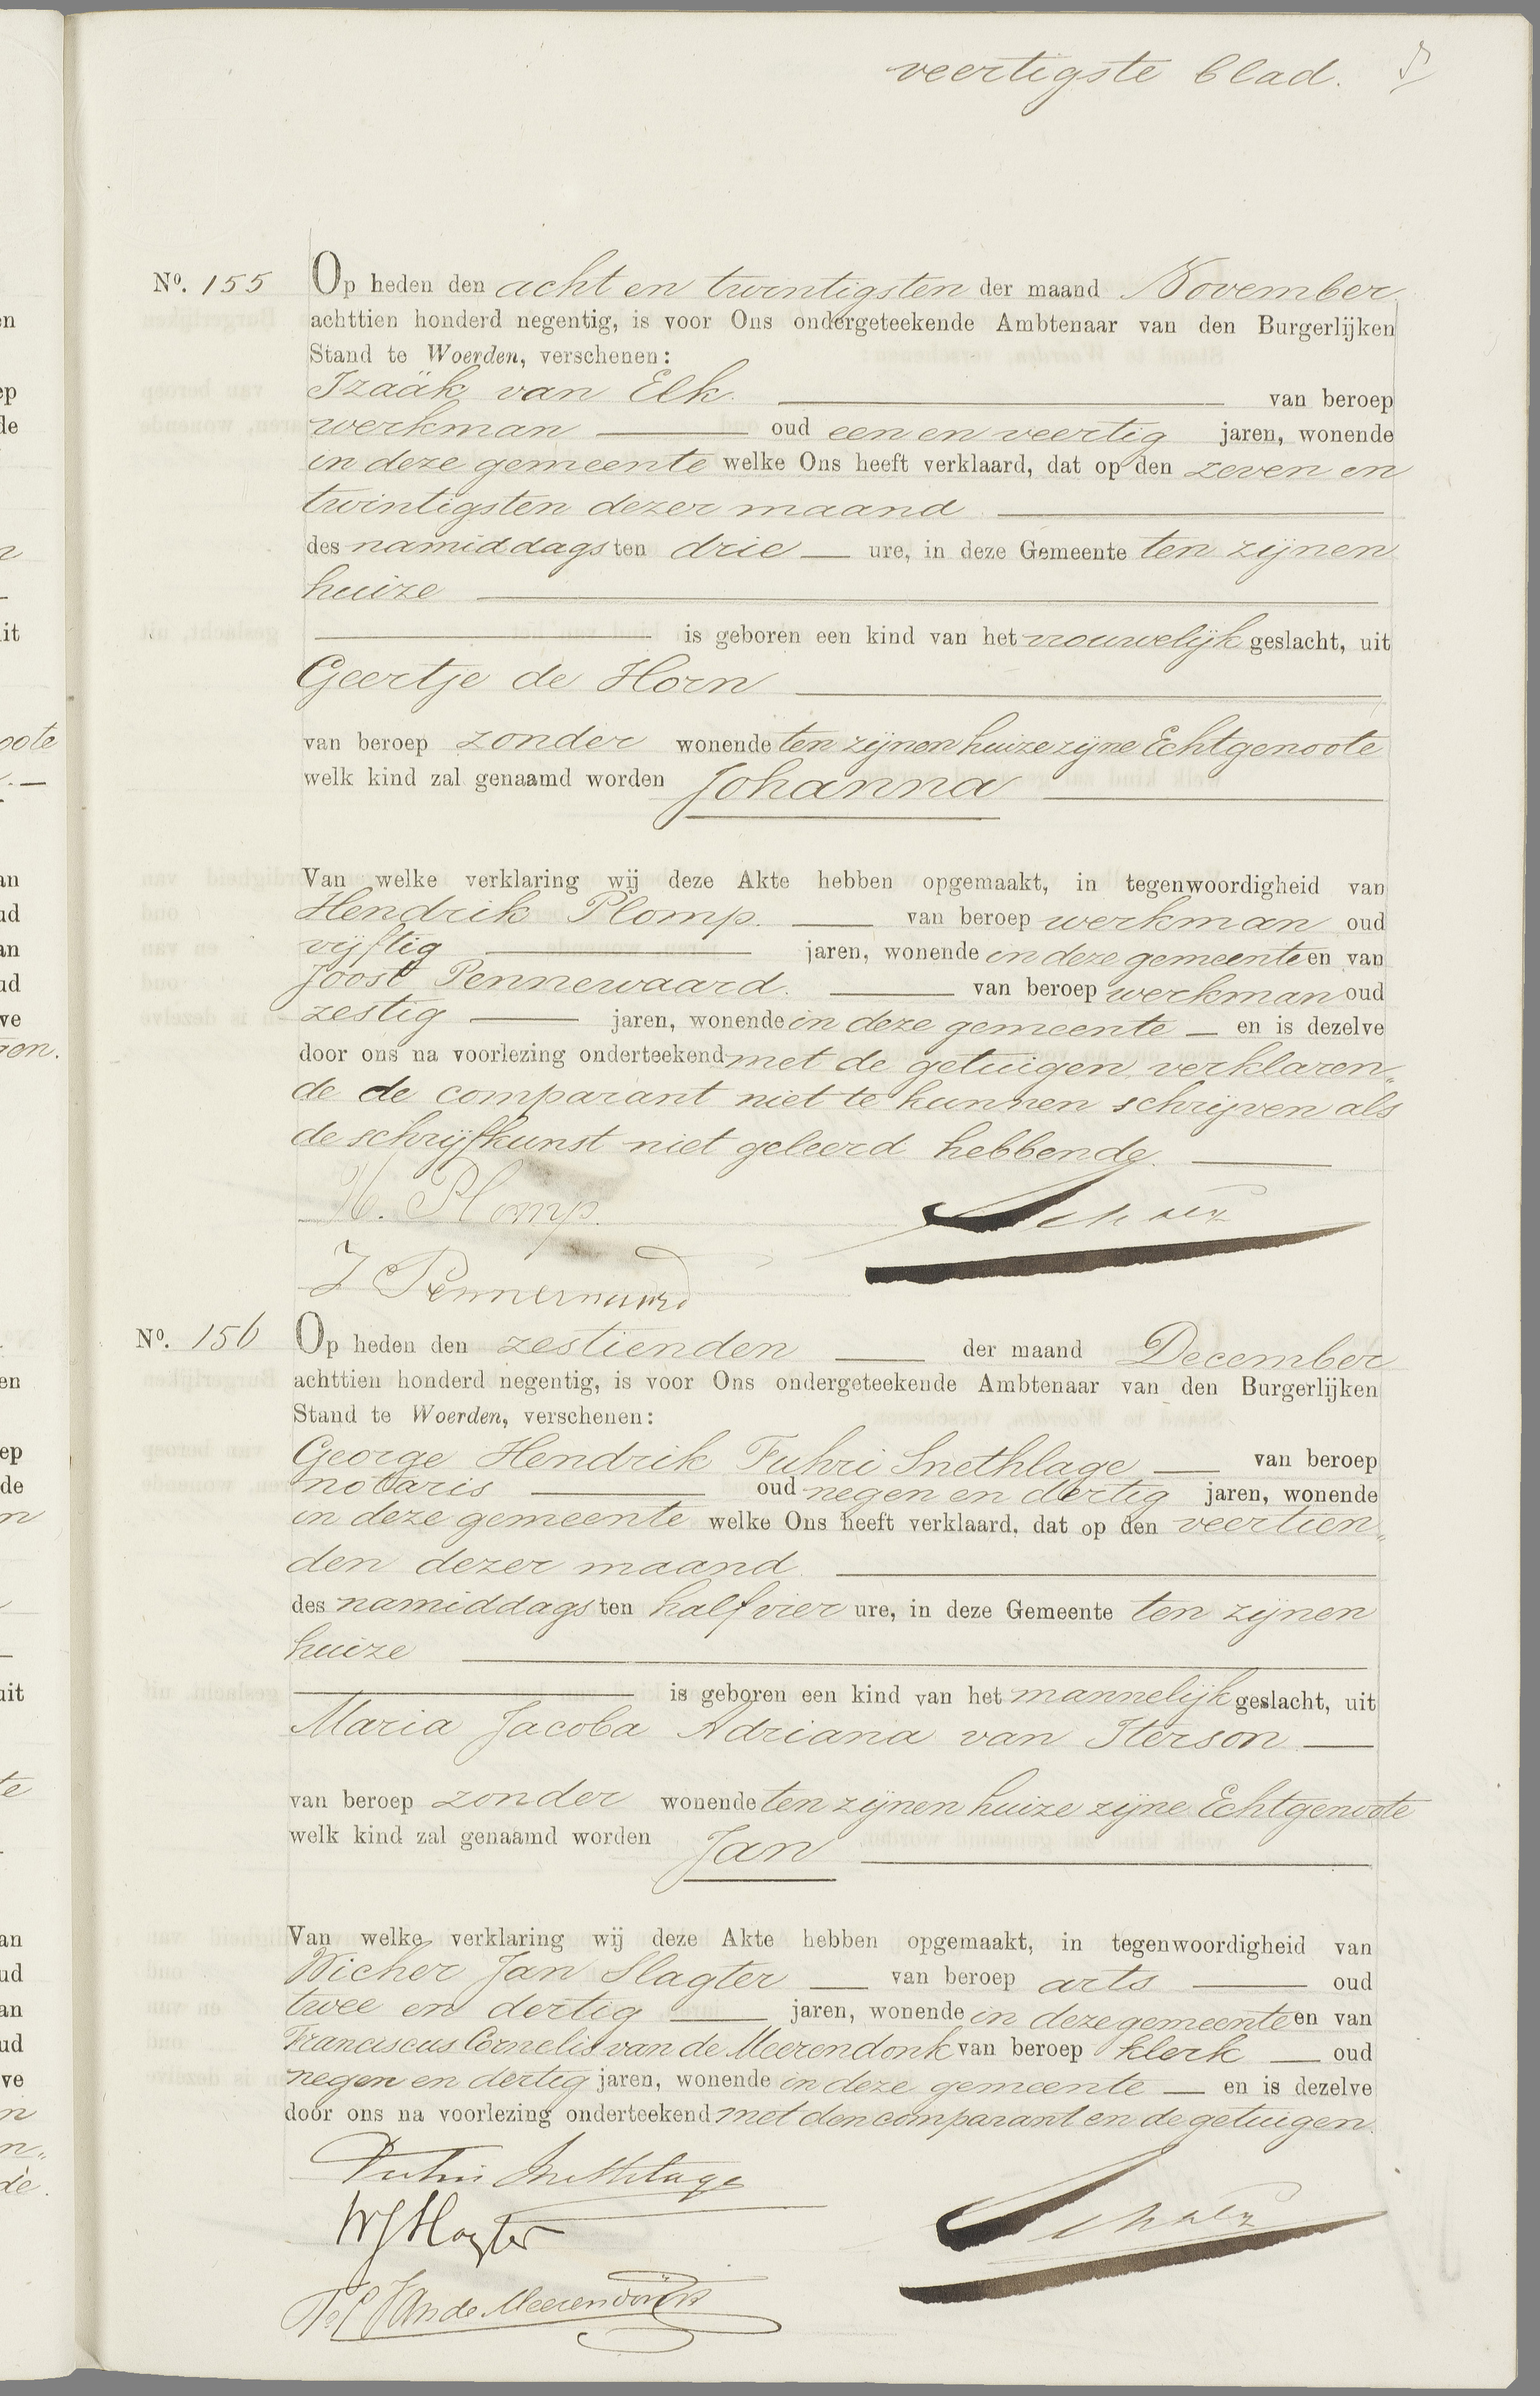 veertigste blad.
No. 155
Op heden den acht en twintigsten der maand November
achttien honderd negentig, is voor Ons ondergeteekende Ambtenaar van den Burgerlijken
Stand te Woerden, verschenen:
Izaäk van Elk. van beroep
werkman oud een en veertig jaren, wonende
in deze gemeente welke Ons heeft verklaard, dat op den zeven en
twintigsten dezer maand
des namiddags ten drie ure, in deze Gemeente ten zijnen
huize
is geboren een kind van het vrouwelijk geslacht, uit
Geertje de Horn
van beroep zonder wonende ten zijnen huize zijne Echtgenoote
welk kind zal genaamd worden Johanna
Van welke verklaring wij deze Akte hebben opgemaakt, in tegenwoordigheid van
Hendrik Plomp. van beroep werkman oud
vijftig jaren, wonende in deze gemeente en van
Joost Pennewaard. van beroep werkman oud
zestig jaren, wonende in deze gemeente en is dezelve
door ons na voorlezing onderteekend met de getuigen, verklaren„
de de comparant niet te kunnen schrijven als
de schrijfkunst niet geleerd hebbende.
H. Plomp.
J Pennewaard
No. 156
Op heden den zestienden der maand December
achttien honderd negentig, is voor Ons ondergeteekende Ambtenaar van den Burgerlijken
Stand te Woerden, verschenen:
George Hendrik Fuhri Snethlage van beroep
notaris oud negen en dertig jaren, wonende
in deze gemeente welke Ons heeft verklaard, dat op den veertien„
den dezer maand.
des namiddags ten half vier ure, in deze Gemeente ten zijnen
huize
is geboren een kind van het mannelijk geslacht, uit
Maria Jacoba Adriana van Iterson
van beroep zonder wonende ten zijnen huize zijne Echtgenoote
welk kind zal genaamd worden Jan
Van welke verklaring wij deze Akte hebben opgemaakt, in tegenwoordigheid van
Wicher Jan Slagter van beroep arts oud
twee en dertig jaren, wonende in deze gemeente en van
Franciscus Cornelis van de Meerendonk van beroep klerk oud
negen en dertig jaren, wonende in deze gemeente en is dezelve
door ons na voorlezing onderteekend met den comparant en de getuigen.
Fuhri Snethlage
WJ Slagter
van de Meerendonk